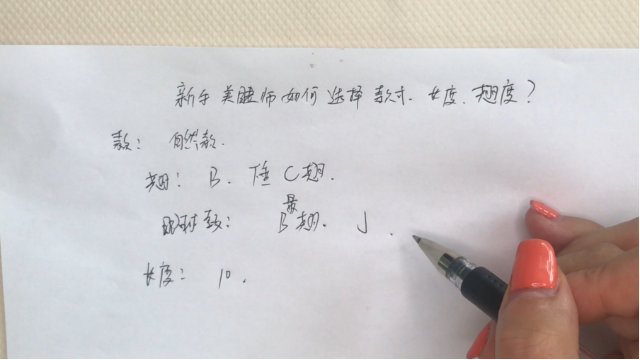 新手美睫师如何选择款式、长度、翘度？
款：自然款.
翘：B. 下垂 C翘.
眼睛款：最B翘. J.
长度：10.